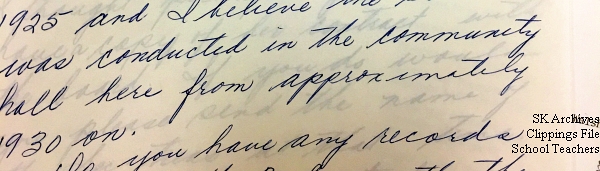 1925 and I believe the
was conducted in the community
hall here from approximately
1930 on.
you have any records
SK Archives
Clippings File
School Teachers